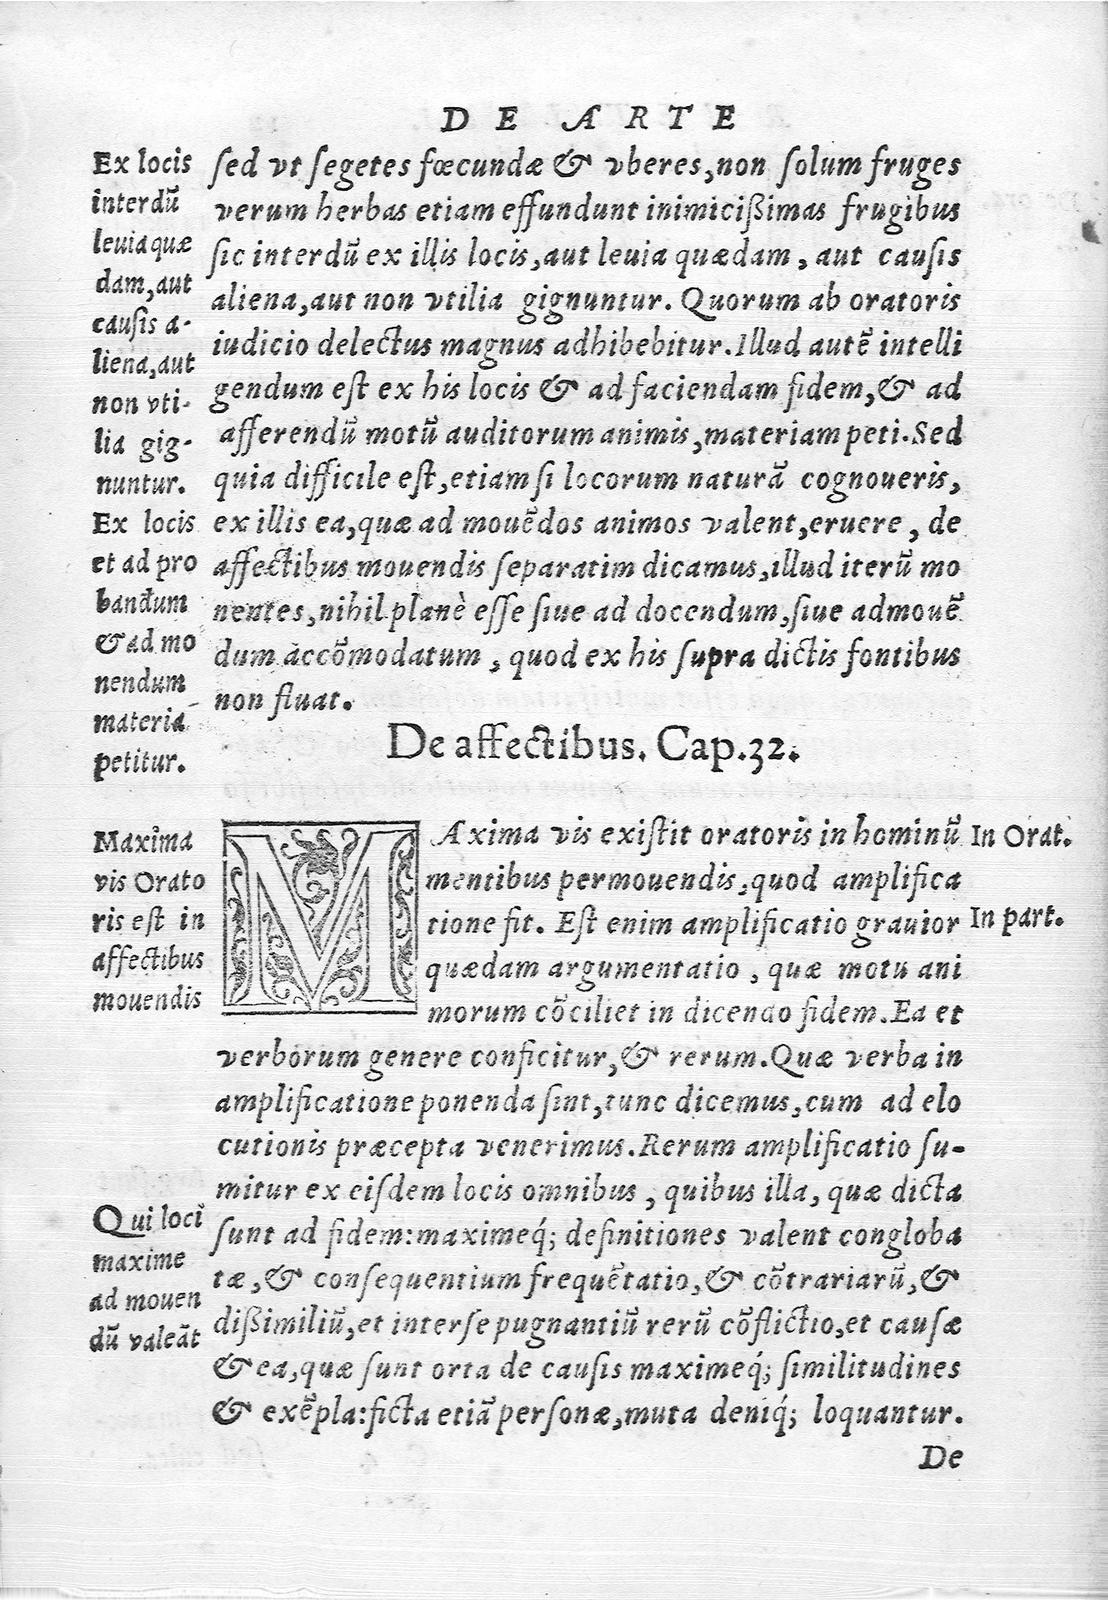 DE ARTE
Ex locis
interdũ
leuia quæ
dam, aut
causis a-
liena, aut
non vti-
lia gig-
nuntur.
Ex locis
et ad pro
bandum
& ad mo
nendum
materia
petitur.
ſed vt ſegetes fœcundæ & vberes, non ſolum fruges
verum herbas etiam effundunt inimicißimas frugibus
ſic interdũ ex illis locis, aut leuia quædam, aut cauſis
aliena, aut non vtilia gignuntur. Quorum ab oratoris
iudicio delectus magnus adhibebitur. Illud autẽ intelli
gendum eſt ex his locis & ad faciendam fidem, & ad
afferendũ motũ auditorum animis, materiam peti. Sed
quia difficile eſt, etiam ſi locorum naturã cognoueris,
ex illis ea, quæ ad mouẽdos animos valent, eruere, de
affectibus mouendis ſeparatim dicamus, illud iterũ mo
nentes, nihil planè eſſe ſiue ad docendum, ſiue ad mouẽ
dum àccõmodatum, quod ex his ſupra dictis fontibus
non fluat.
De affectibus. Cap. 32.
Maxima
vis Orato
ris eſt in
affectibus
mouendis
MAxima vis exiſtit oratoris in hominũ
mentibus permouendis, quod amplifica
tione fit. Eſt enim amplificatio grauior
quædam argumentatio, quæ motu ani
morum cõciliet in dicendo fidem. Ea et
In Orat.
In part.
verborum genere conficitur, & rerum. Quæ verba in
amplificatione ponenda ſint, tunc dicemus, cum ad elo
cutionis præcepta venerimus. Rerum amplificatio ſu-
mitur ex eiſdem locis omnibus, quibus illa, quæ dicta
ſunt ad fidem: maximeq́; definitiones valent congloba
tæ, & conſequentium frequẽtatio, & cõtrariarũ, &
dißimiliũ, et inter ſe pugnantiũ rerũ cõflictio, et cauſæ
& ea, quæ ſunt orta de cauſis maximeq́; ſimilitudines
& exẽpla: ficta etiã perſonæ, muta deniq́; loquantur.
Qui loci
maxime
ad mouen
dũ valeãt
De